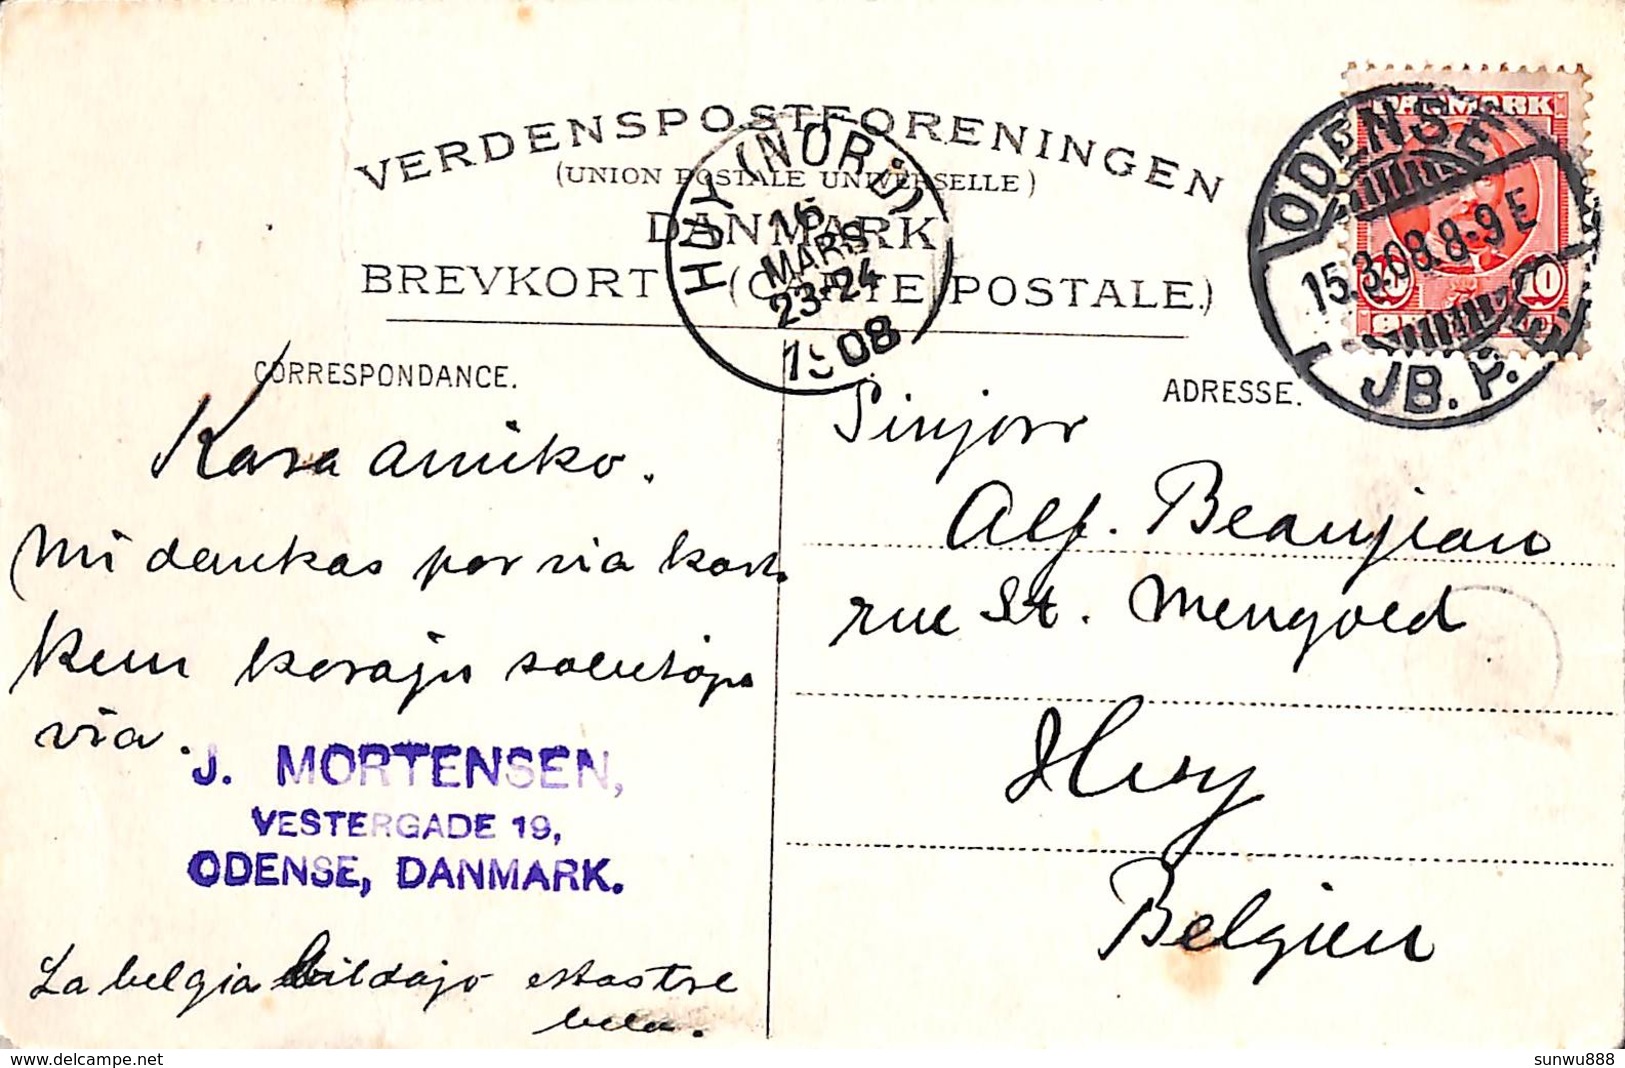 VERDENSPOSTFORENINGEN
(UNION POSTALE UNIVERSELLE)
DANMARK
BREVKORT (CARTE POSTALE.)
HUY (NORD)
16
MARS
23-24
1908
DANMARK
10 10
ODENSE
15.3.08.8-9E
JB.P.E.
CORRESPONDANCE.
Kara amiko.
Mi dankas por via karto
Kun koraju salutojn
via.
J. MORTENSEN,
VESTERGADE 19,
ODENSE, DANMARK.
La belgia bildajo estas tre
bela.
ADRESSE.
Sinjoro
Alf. Beaujean
rue St. Mengold
Huy
Belgien
delcampe.net
sunwu888